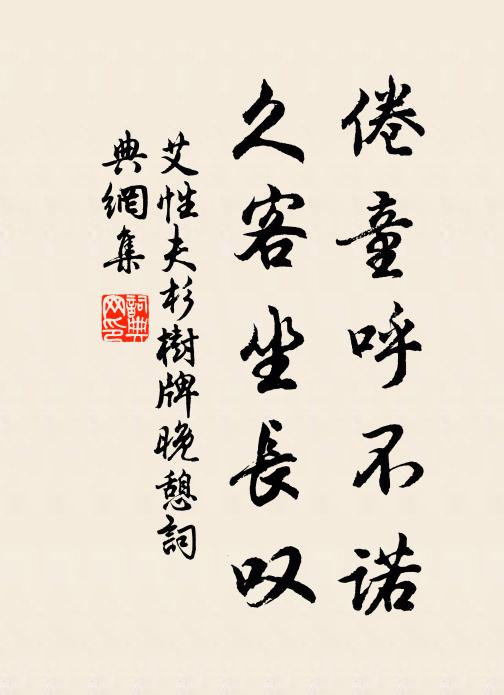 倦童呼不诺
久客坐長叹
艾性夫杉樹牌晚憩詞
典網集
詞典
网印